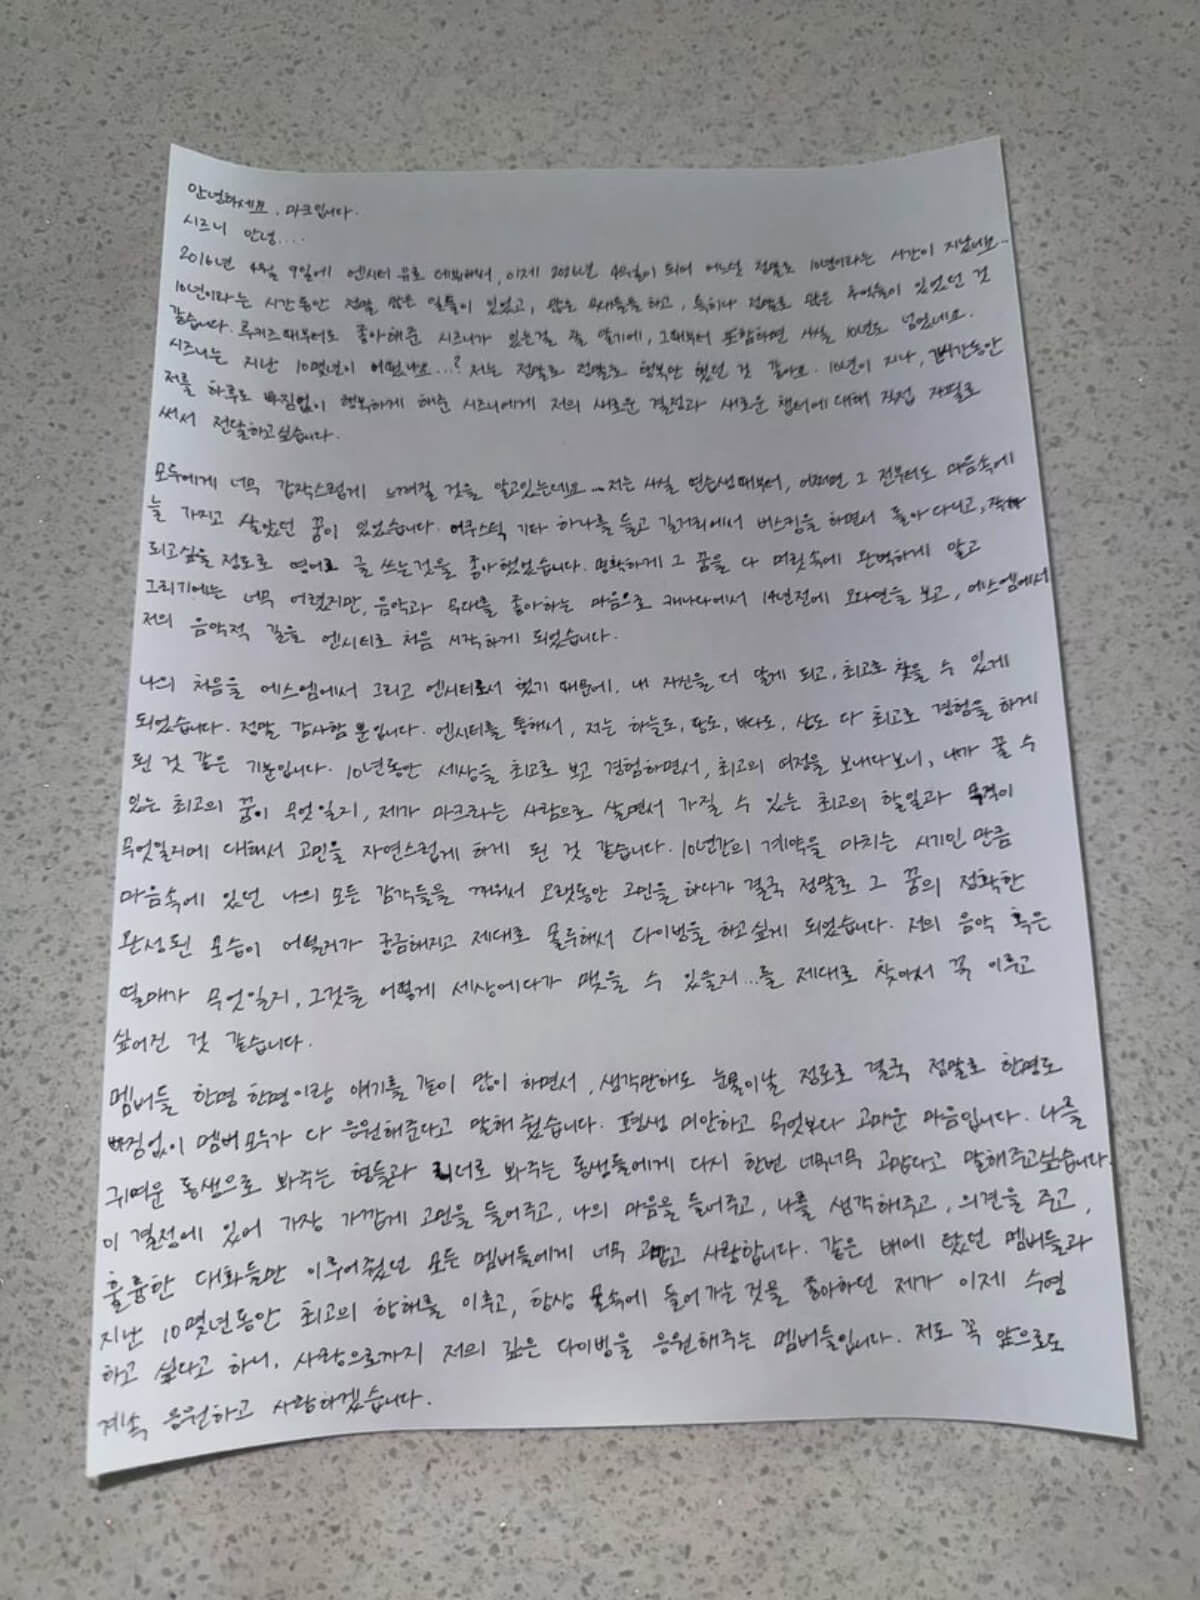 안녕하세요. 마크입니다.
시즈니 안녕....
2016년 4월 9일에 엔시티 유로 데뷔해서, 이제 2026년 4월이 되어 어느덧 정말로 10년이라는 시간이 지났네요..
10년이라는 시간동안 정말 많은 일들이 있었고, 많은 무대들을 하고, 특히나 정말로 많은 추억들이 있었던 것
같습니다. 루키즈때부터도 좋아해준 시즈니가 있는걸 잘 알기에, 그때부터 포함하면 사실 10년도 넘었네요.
시즈니는 지난 10몇년이 어땠나요...? 저는 정말로 정말로 행복만 했던 것 같아요. 10년이 지나, 그시간동안
저를 하루도 빠짐없이 행복하게 해준 시즈니에게 저의 새로운 결정과 새로운 챕터에 대해 직접 자필로
써서 전달하고싶습니다.
모두에게 너무 갑작스럽게 느껴질 것을 알고있는데요... 저는 사실 연습생때부터, 어쩌면 그 전부터도 마음속에
늘 가지고 살았던 꿈이 있었습니다. 어쿠스틱 기타 하나를 들고 길거리에서 버스킹을 하면서 돌아다니고, 작가
되고싶을 정도로 영어로 글 쓰는것을 좋아했었습니다. 명확하게 그 꿈을 다 머릿속에 완벽하게 알고
그리기에는 너무 어렸지만, 음악과 무대를 좋아하는 마음으로 캐나다에서 14년전에 오디션을 보고, 에스엠에서
저의 음악적 길을 엔시티로 처음 시작하게 되었습니다.
나의 처음을 에스엠에서 그리고 엔시티로서 했기 때문에, 내 자신을 더 알게 되고, 최고로 찾을 수 있게
되었습니다. 정말 감사함 뿐입니다. 엔시티를 통해서, 저는 하늘도, 땅도, 바다도, 산도 다 최고로 경험을 하게
된 것 같은 기분입니다. 10년동안 세상을 최고로 보고 경험하면서, 최고의 여정을 보내다보니, 내가 꿀 수
있는 최고의 꿈이 무엇일지, 제가 마크라는 사람으로 살면서 가질 수 있는 최고의 할일과 목적이
무엇일지에 대해서 고민을 자연스럽게 하게 된 것 같습니다. 10년간의 계약을 마치는 시기인 만큼
마음속에 있던 나의 모든 감각들을 깨워서 오랫동안 고민을 하다가 결국 정말로 그 꿈의 정확한
완성된 모습이 어떨지가 궁금해지고 제대로 몰두해서 다이빙을 하고싶게 되었습니다. 저의 음악 혹은
열매가 무엇일지, 그것을 어떻게 세상에다가 맺을 수 있을지...를 제대로 찾아서 꼭 이루고
싶어진 것 같습니다.
멤버들 한명 한명이랑 얘기를 같이 많이 하면서, 생각만해도 눈물이날 정도로 결국 정말로 한명도
빠짐없이 멤버 모두가 다 응원해준다고 말해 줬습니다. 평생 미안하고 무엇보다 고마운 마음입니다. 나를
귀여운 동생으로 봐주는 형들과 리더로 봐주는 동생들에게 다시 한번 너무너무 고맙다고 말해주고싶습니다.
이 결정에 있어 가장 가깝게 고민을 들어주고, 나의 마음을 들어주고, 나를 생각해주고, 의견을 주고,
훌륭한 대화들만 이루어줬던 모든 멤버들에게 너무 고맙고 사랑합니다. 같은 배에 탔던 멤버들과
지난 10몇년동안 최고의 항해를 이루고, 항상 물속에 들어가는것을 좋아하던 제가 이제 수영
하고 싶다고 하니, 사랑으로까지 저의 깊은 다이빙을 응원해주는 멤버들입니다. 저도 꼭 앞으로도
계속 응원하고 사랑하겠습니다.